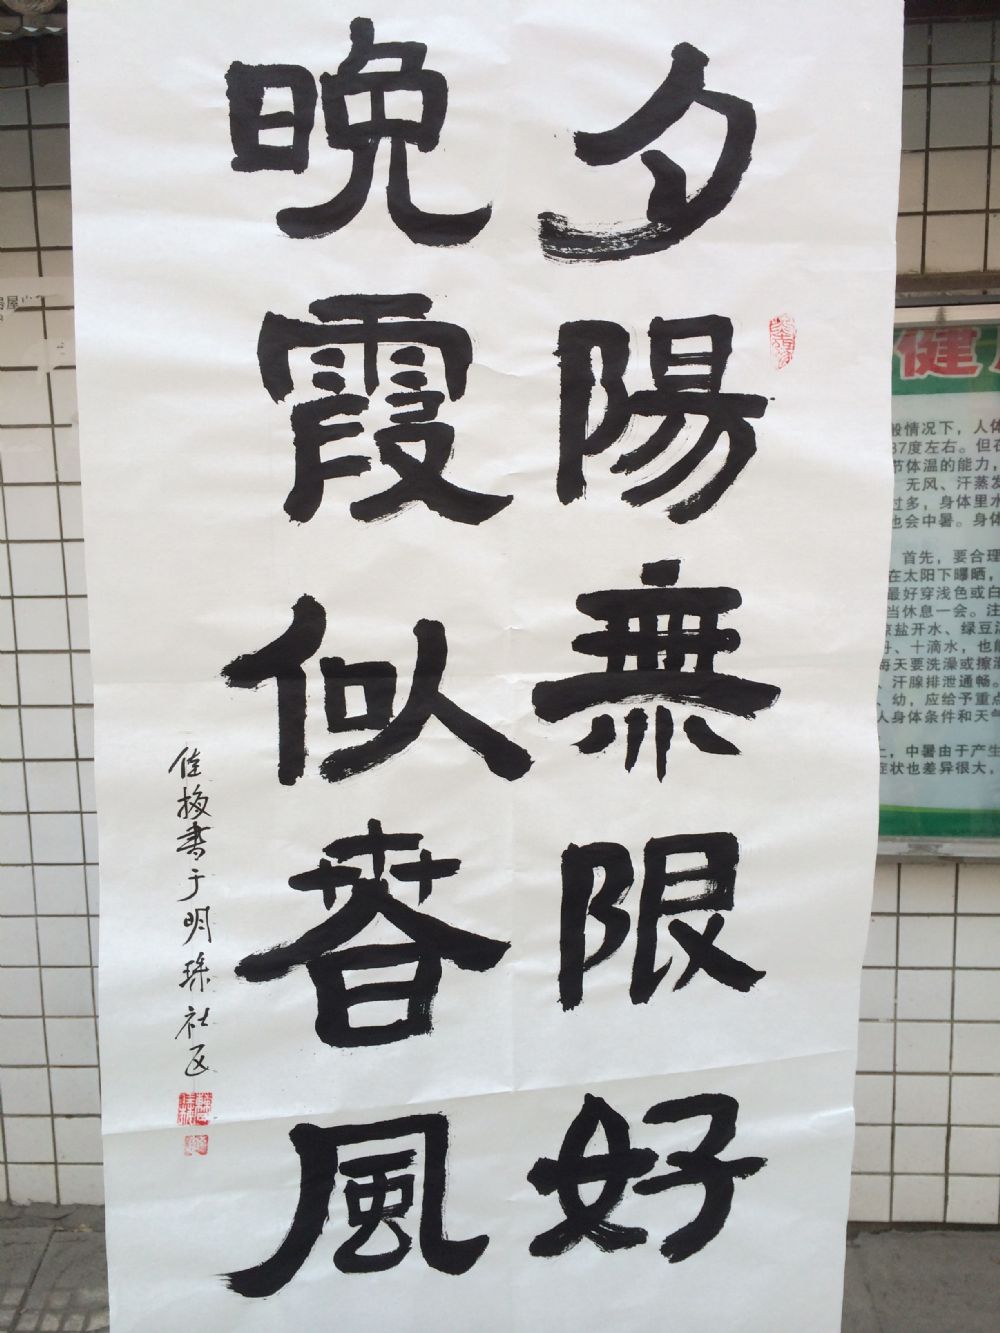 夕陽無限好
晚霞似春風
佳梅書于明珠社区
健
般情况下，人体
37度左右。但在
节体温的能力，
无风、汗蒸发
过多，身体里水
也会中暑。身体
首先，要合理
在太阳下曝晒，
最好穿浅色或白
当休息一会。注
凉盐开水、绿豆汤
丹、十滴水，也能
每天要洗澡或擦澡
、汗腺排泄通畅。
、幼，应给予重点
人身体条件和天气
上，中暑由于产生
症状也差异很大，